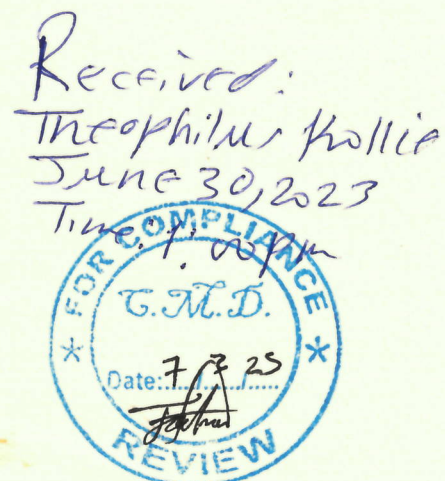 Received:
Theophilus Kollie
June 30, 2023
Time: 1:00pm
FOR COMPLIANCE
C.M.D.
Date: 7/3/23
REVIEW